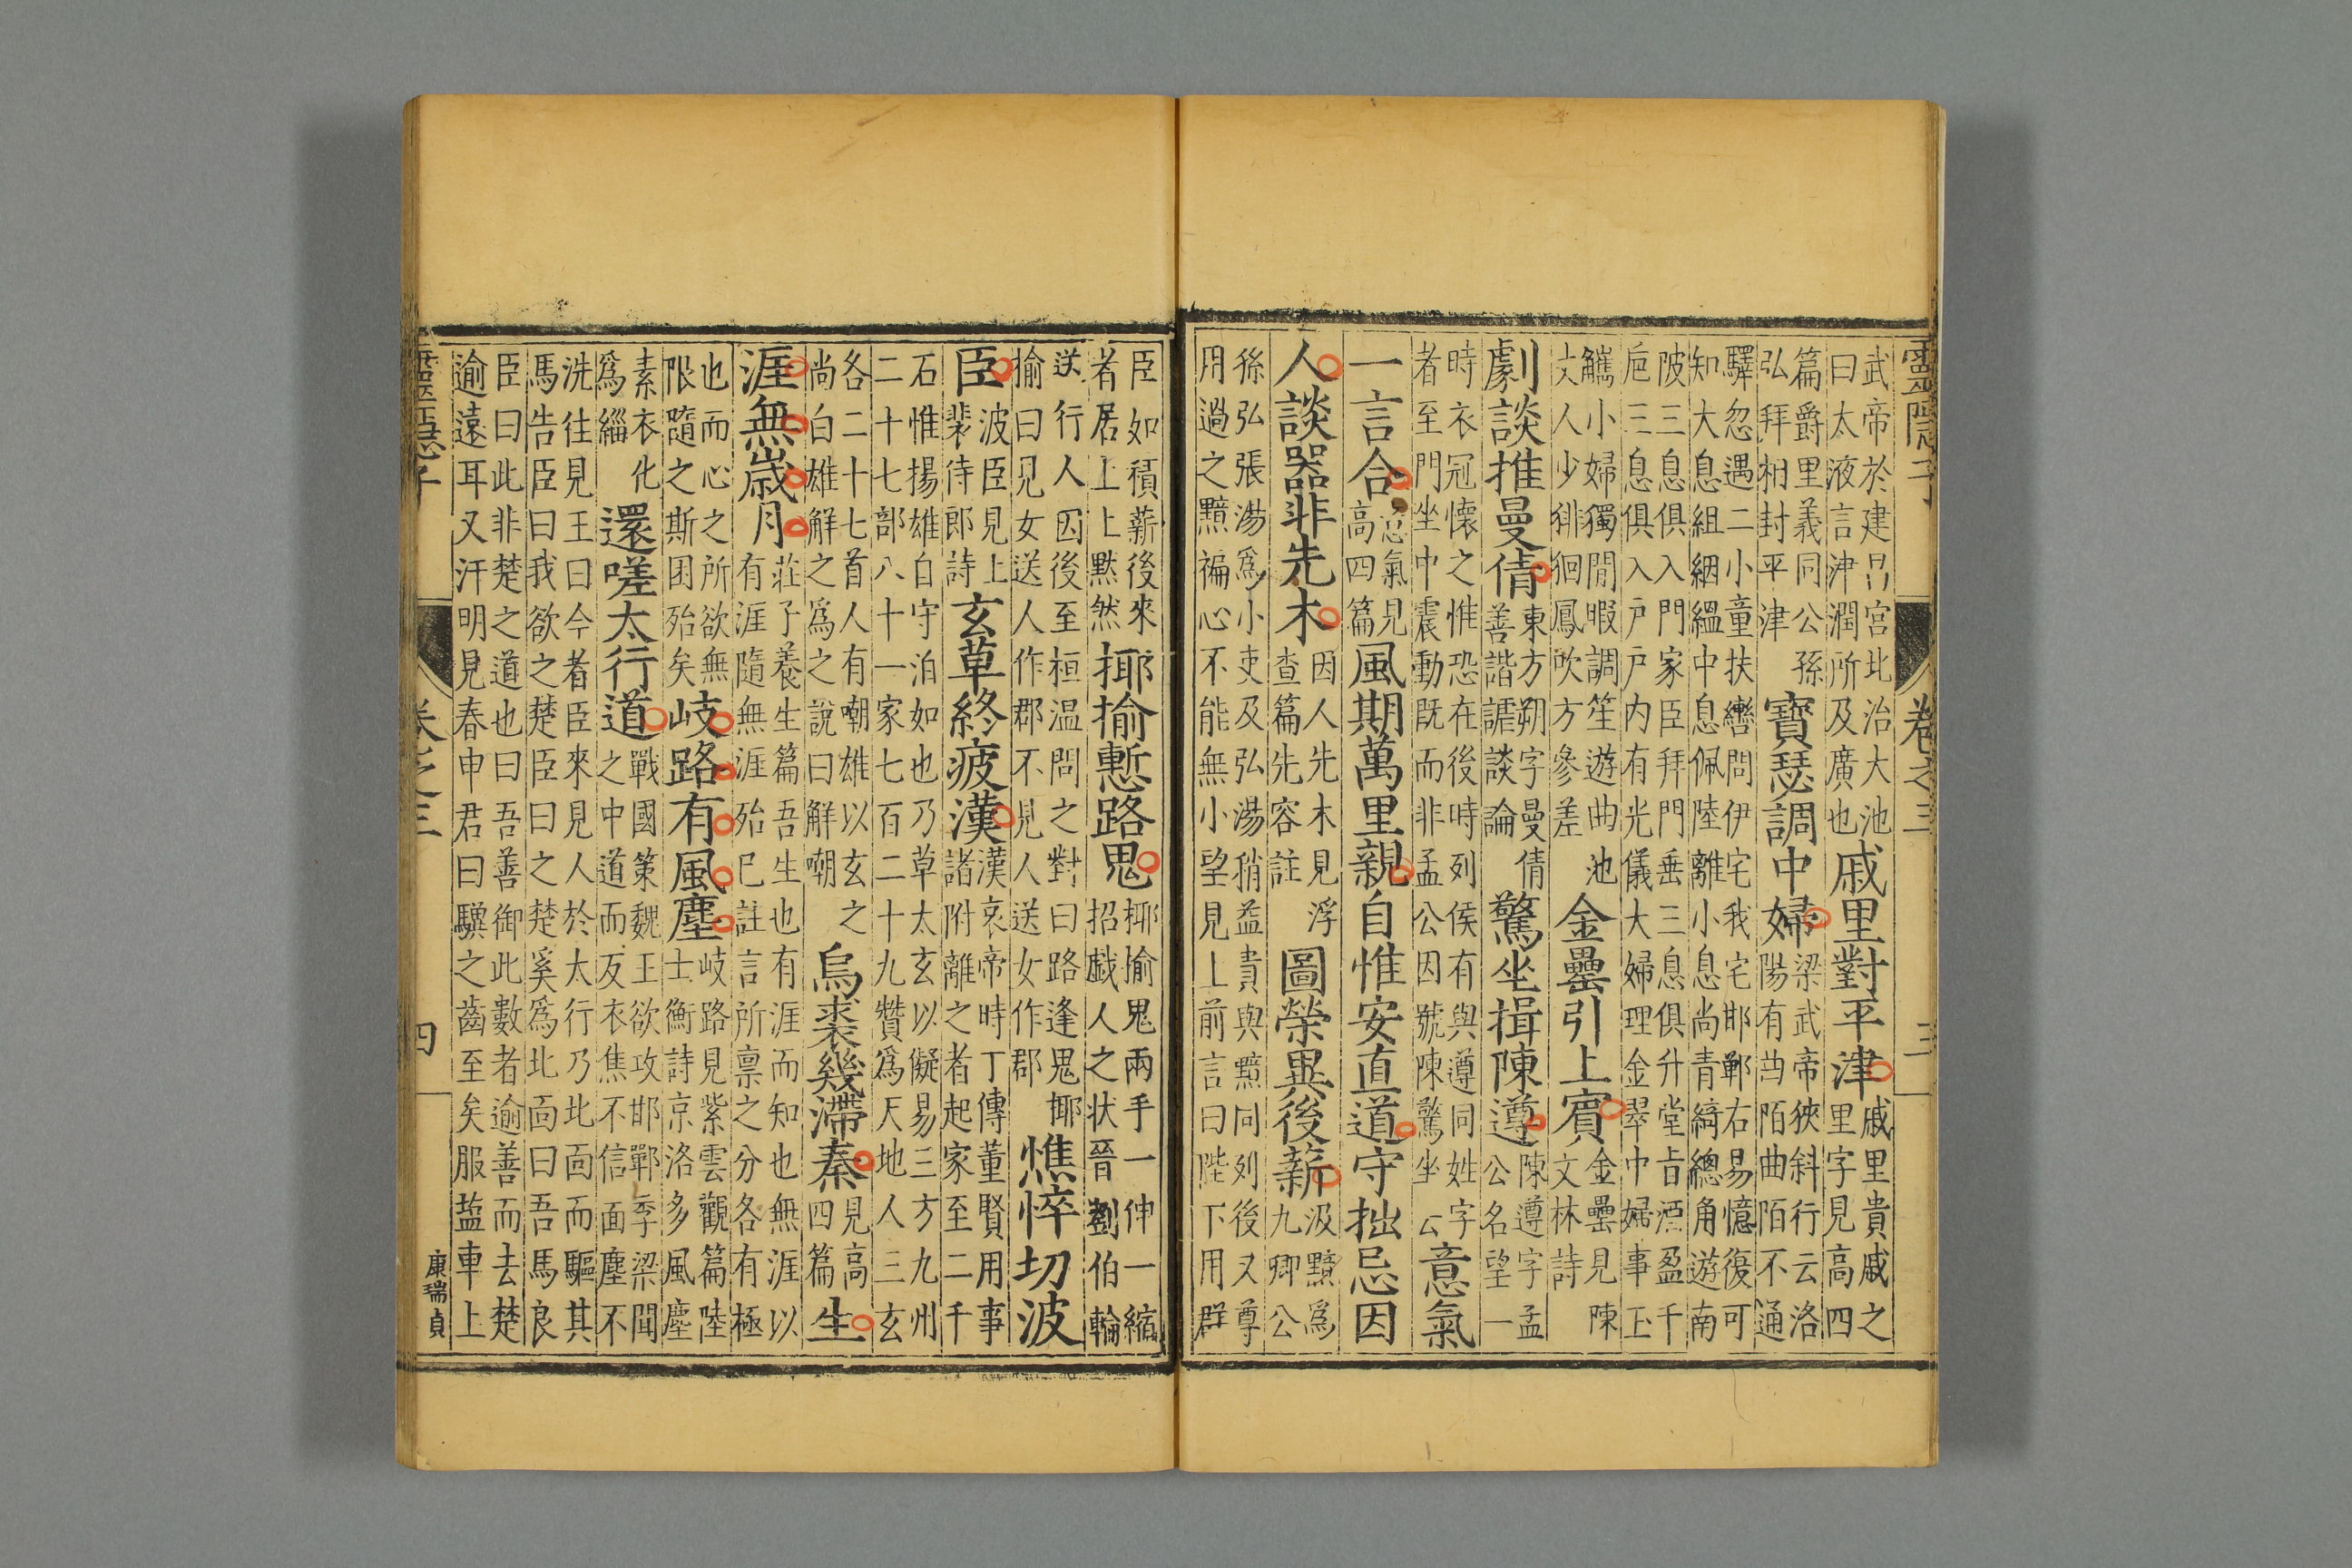 靈隱子 卷之三 三
武帝於建昌宮北治大池
曰太液言津潤所及廣也
戚里對平津
戚里貴戚之
里字見高四
篇爵里義同公孫
弘拜相封平津
寶瑟調中婦
梁武帝狹斜行云洛
陽有曲陌曲陌不通
驛忽遇二小童扶轡問伊宅我宅邯鄲右易憶復可
知大息組絪縕中息佩陸離小息尚青綺總角遊南
陂三息俱入門家臣拜門垂三息俱升堂旨酒盈千
巵三息俱入戶戶内有光儀大婦理金翠中婦事玉
觿小婦獨閒暇調笙遊曲池
丈人少徘徊鳳吹方參差
金罍引上賓
金罍見陳
文林詩
劇談推曼倩
東方朔字曼倩
善諧謔談論
驚坐揖陳遵
陳遵字孟
公名望一
時衣冠懷之惟恐在後時列侯有與遵同姓字
者至門坐中震動既而非孟公因號陳驚坐云
意氣
一言合
氣見
高四篇
風期萬里親自惟安直道守拙忌因
人談器非先木
因人先木見浮
查篇先容註
圖榮異後薪
汲黯爲
九卿公
孫弘張湯爲小吏及弘湯稍益貴與黯同列後又尊
用過之黯褊心不能無小望見上前言曰陛下用群
臣如積薪後來
者居上上黙然
揶揄慙路鬼
揶揄鬼兩手一伸一縮
招戯人之状晉劉伯輪
送行人因後至桓温問之對曰路逢鬼揶
揄曰見女送人作郡不見人送女作郡
憔悴切波
臣
波臣見上
裴侍郎詩
玄草終疲漢
漢哀帝時丁傅董賢用事
諸附離之者起家至二千
石惟揚雄自守泊如也乃草太玄以儗易三方九州
二十七部八十一家七百二十九贊爲天地人三玄
各二十七首人有嘲雄以玄之
尚白雄解之爲之說曰解嘲
烏裘幾滯秦
見高
四篇
生
涯無歳月
莊子養生篇吾生也有涯而知也無涯以
有涯隨無涯殆已註言所禀之分各有極
也而心之所欲無
限隨之斯困殆矣
岐路有風塵
岐路見紫雲觀篇陸
士衡詩京洛多風塵
素衣化
爲緇
還嗟太行道
戰國策魏王欲攻邯鄲季梁聞
之中道而反衣焦不信面塵不
洗往見王曰今者臣來見人於太行乃北面而驅其
馬告臣曰我欲之楚臣曰之楚奚爲北面曰吾馬良
臣曰此非楚之道也曰吾善御此數者逾善而去楚
逾遠耳又汗明見春申君曰驥之齒至矣服盐車上
卷之三 四
康瑞貞